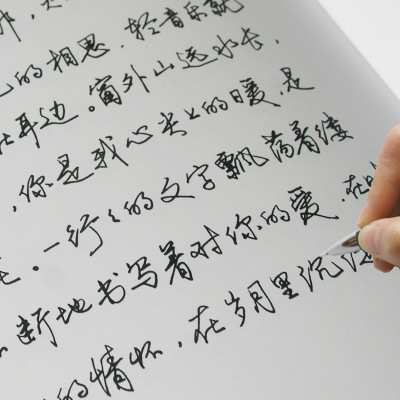 的相思，轻音乐就
在耳边。窗外山远水长，
，你是我心尖上的暖，是
。一行々的文字飘荡着缕
断地书写着对你的爱，在
的情怀，在岁月里沉